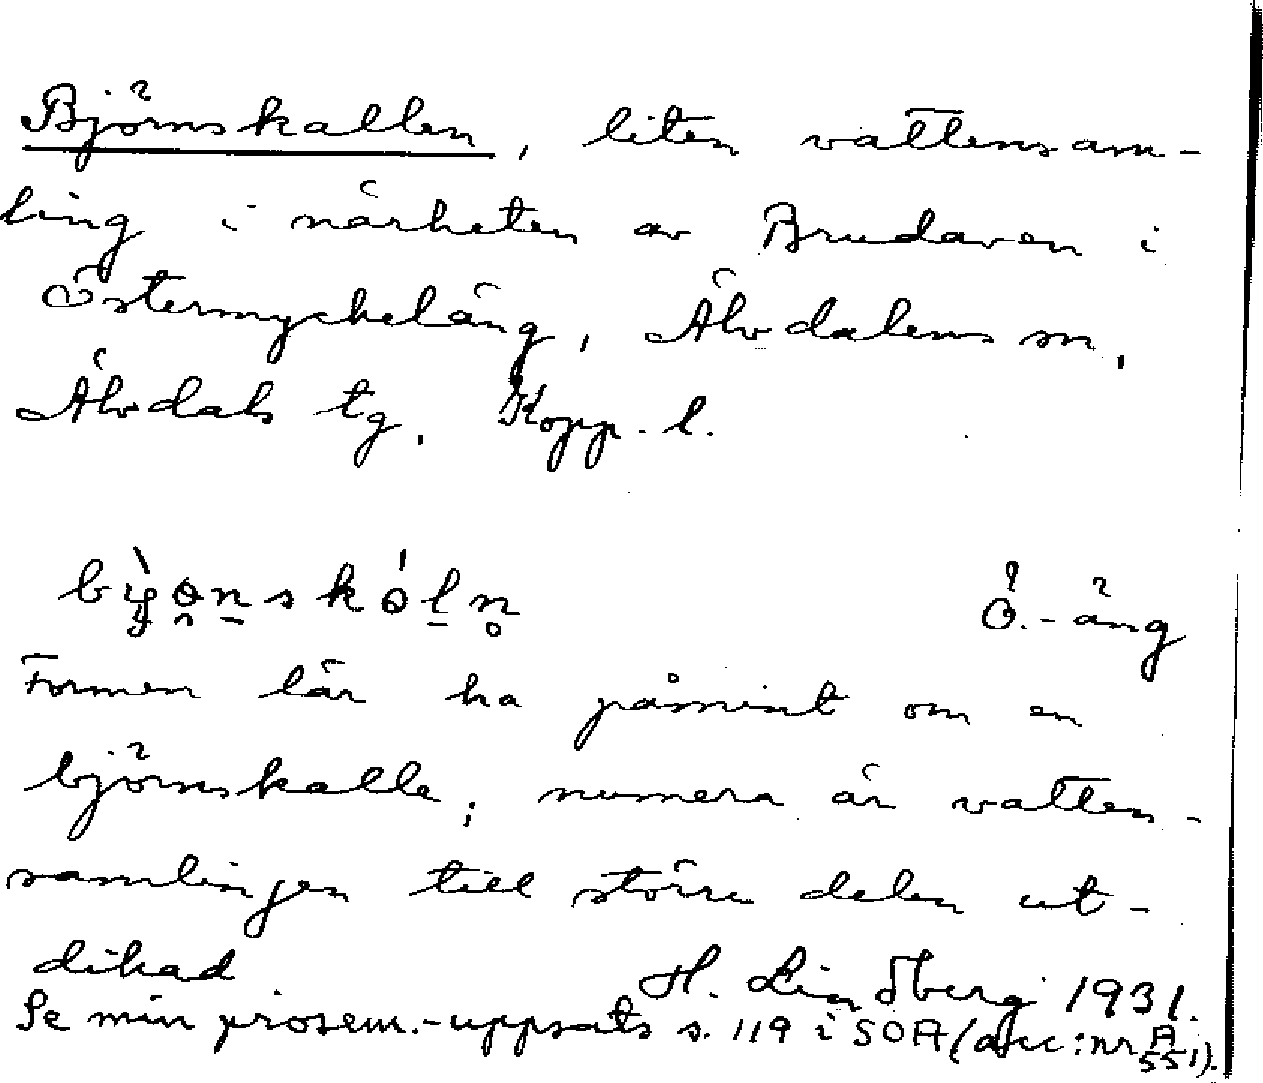 Björnskallen, liten vattensam-
ling i närheten av Brudaven i
Östermyckeläng, Älvdalens sn,
Älvdals tg, Kopp. l.
Ö.-äng
Formen lär ha påmint om en
björnskalle; numera är vatten-
samlingen till större delen ut-
dikad
H. Lindberg 1931.
Se min prosem.-uppsats s. 119 i SOA (acc:nr A 551).